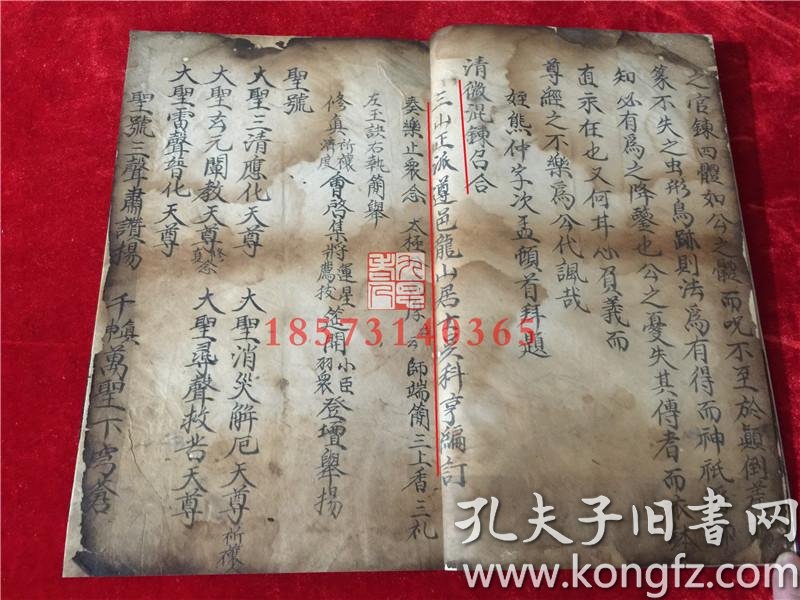 之官鍊四體如公之體而呪不至於顛倒
篆不失之虫形鳥跡則法為有得而神祇
知必有為之降鑒也公之憂失其傳者而
直示在也又何其心負義而
尊經之不樂為公代諷哉
姪熊仲字次孟頓首拜題
清微混鍊召合
三山正派遵邑龍山居士吳科亨編訂
奏樂止衆念 太極 師端簡三上香三礼
左王訣右執簡舉
修真 祈禳 濟度 會啓集將 運星 薦技 筵開 小臣 羽衆 登壇舉揚
聖號
大聖三清應化天尊 大聖消災解厄天尊 祈禳
大聖玄元闡教天尊 修真念 大聖尋聲救苦天尊
大聖雷聲普化天尊
聖號三聲肅讚揚 千真萬聖下穹蒼
18573140365
孔夫子旧書网
www.kongfz.com